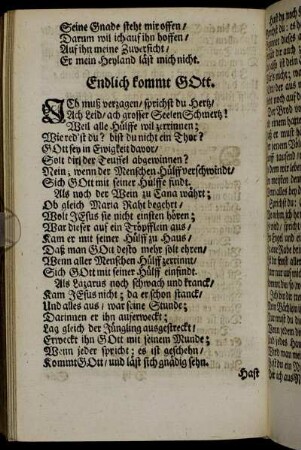 Seine Gnade steht mir offen/
Darum will ich auf ihn hoffen/
Auf ihn meine Zuversicht/
Er mein Heyland läst mich nicht.
Endlich kommt GOtt.
ICh muß verzagen/ sprichst du Hertz/
Ach Leid/ ach grosser Seelen Schmertz!
Weil alle Hülffe will zerrinnen;
Wie redst du? bist du nicht ein Thor?
GOtt sey in Ewigkeit davor/
Solt dir der Teuffel abgewinnen?
Nein; wenn der Menschen Hülff verschwindt/
Sich GOtt mit seiner Hülffe findt.
Als noch der Wein zu Cana währt;
Ob gleich Maria Raht begehrt/
Wolt JEsus sie nicht einsten hören;
War dieser auf ein Tröpfflein aus/
Kam er mit seiner Hülff zu Haus/
Daß man GOtt desto mehr solt ehren/
Wenn aller Menschen Hülff zerrinnt/
Sich GOtt mit seiner Hülff einfindt.
Als Lazarus noch schwach und kranck/
Kam JEsus nicht; da er schon stanck/
Und alles aus/ war seine Stunde;
Darinnen er ihn auferweckt;
Lag gleich der Jüngling ausgestreckt/
Erweckt ihn GOtt mit seinem Munde;
Wenn jeder spricht: es ist geschehn/
Kommt GOtt/ und läst sich gnädig sehn.
Hast